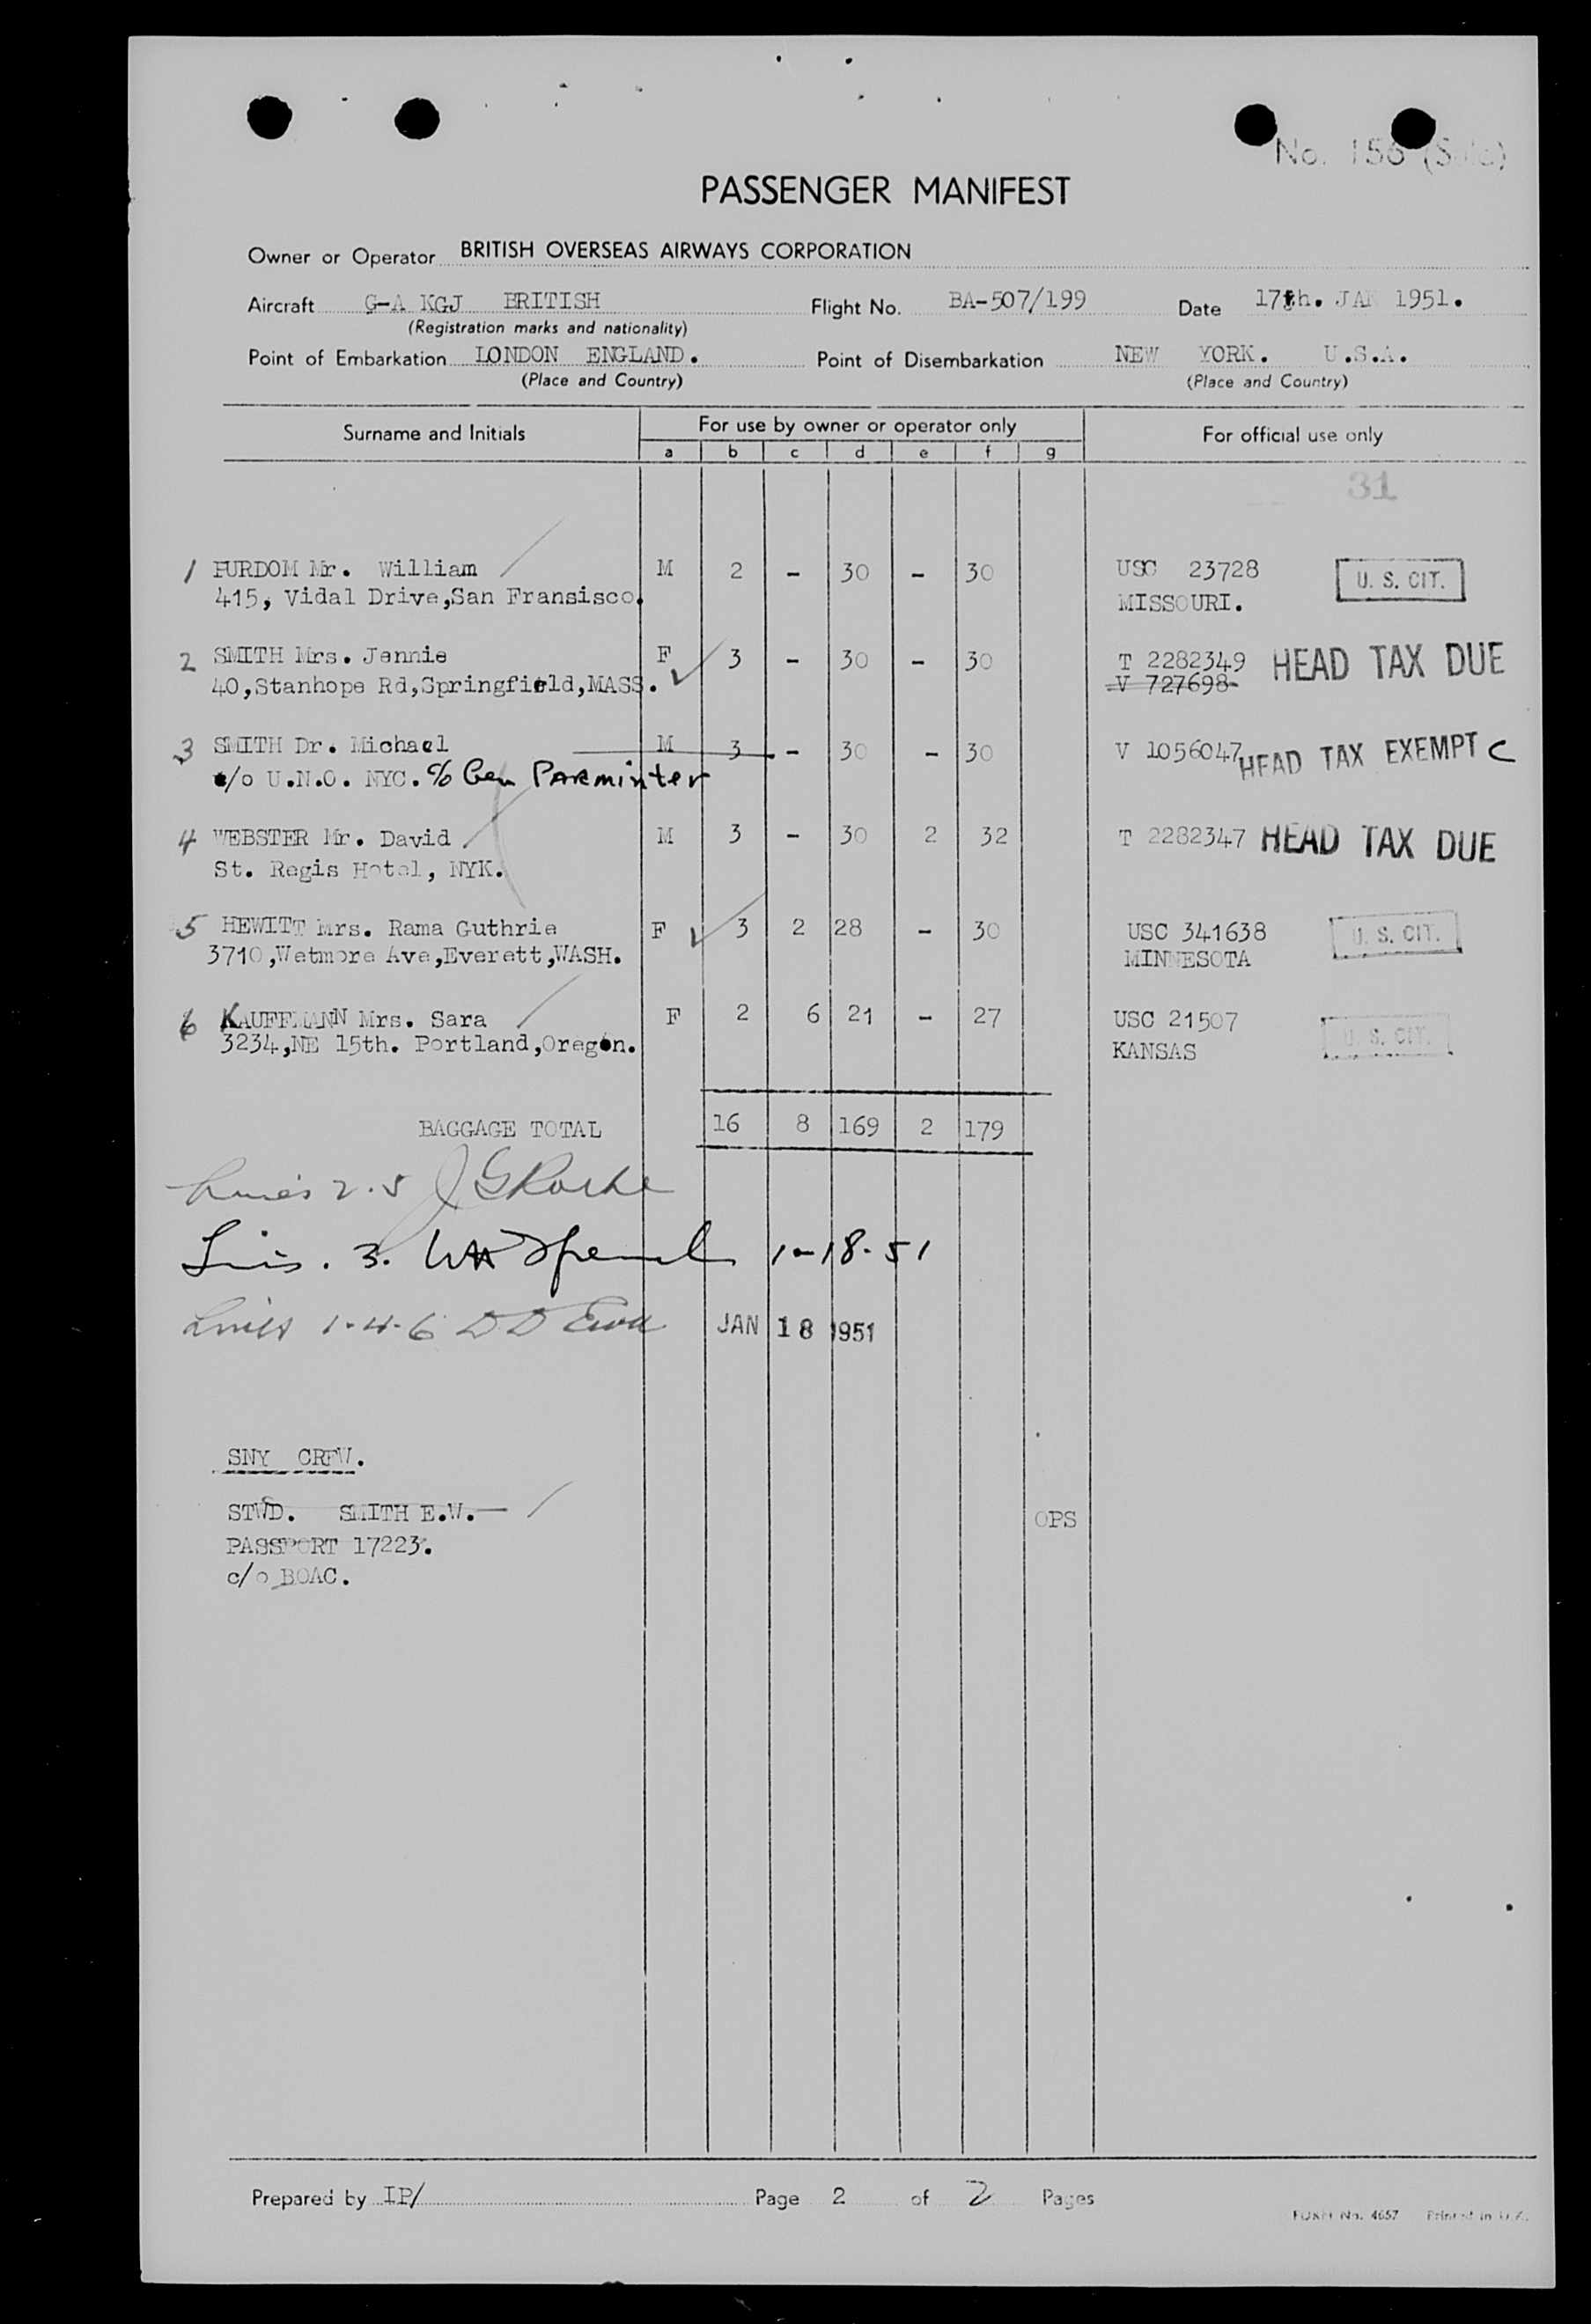 No. 156
PASSENGER MANIFEST
Owner or Operator BRITISH OVERSEAS AIRWAYS CORPORATION
Aircraft G-A KGJ BRITISH Flight No. BA-507/199 Date 17th. JAN 1951.
(Registration marks and nationality)
Point of Embarkation LONDON ENGLAND. Point of Disembarkation NEW YORK. U.S.A.
(Place and Country) (Place and Country)
Surname and Initials For use by owner or operator only For official use only
a b c d e f g
31
1 PURDOM Mr. William M 2 - 30 - 30 USC 23728 U. S. CIT.
415, Vidal Drive,San Fransisco. MISSOURI.
2 SMITH Mrs. Jennie F 3 - 30 - 30 T 2282349 HEAD TAX DUE
40,Stanhope Rd,Springfield,MASS. V 727698
3 SMITH Dr. Michael M 3 - 30 - 30 V 1056047 HEAD TAX EXEMPT C
c/o U.N.O. NYC. c/o Gen Parminter
4 WEBSTER Mr. David M 3 - 30 2 32 T 2282347 HEAD TAX DUE
St. Regis Hotel, NYK.
5 HEWITT Mrs. Rama Guthrie F 3 2 28 - 30 USC 341638 U. S. CIT.
3710,Wetmore Ave,Everett,WASH. MINNESOTA
6 KAUFFMANN Mrs. Sara F 2 6 21 - 27 USC 21507 U. S. CIT.
3234,NE 15th. Portland,Oregon. KANSAS
BAGGAGE TOTAL 16 8 169 2 179
Lines 2.5
Lin. 3. 1-18-51
Lines 1-4-6 JAN 18 1951
SNY CREW.
STWD. SMITH E.W.
PASSPORT 17223. OPS
c/o BOAC.
Prepared by IP/ Page 2 of 2 Pages
FORM No. 4657 Printed in U.K.